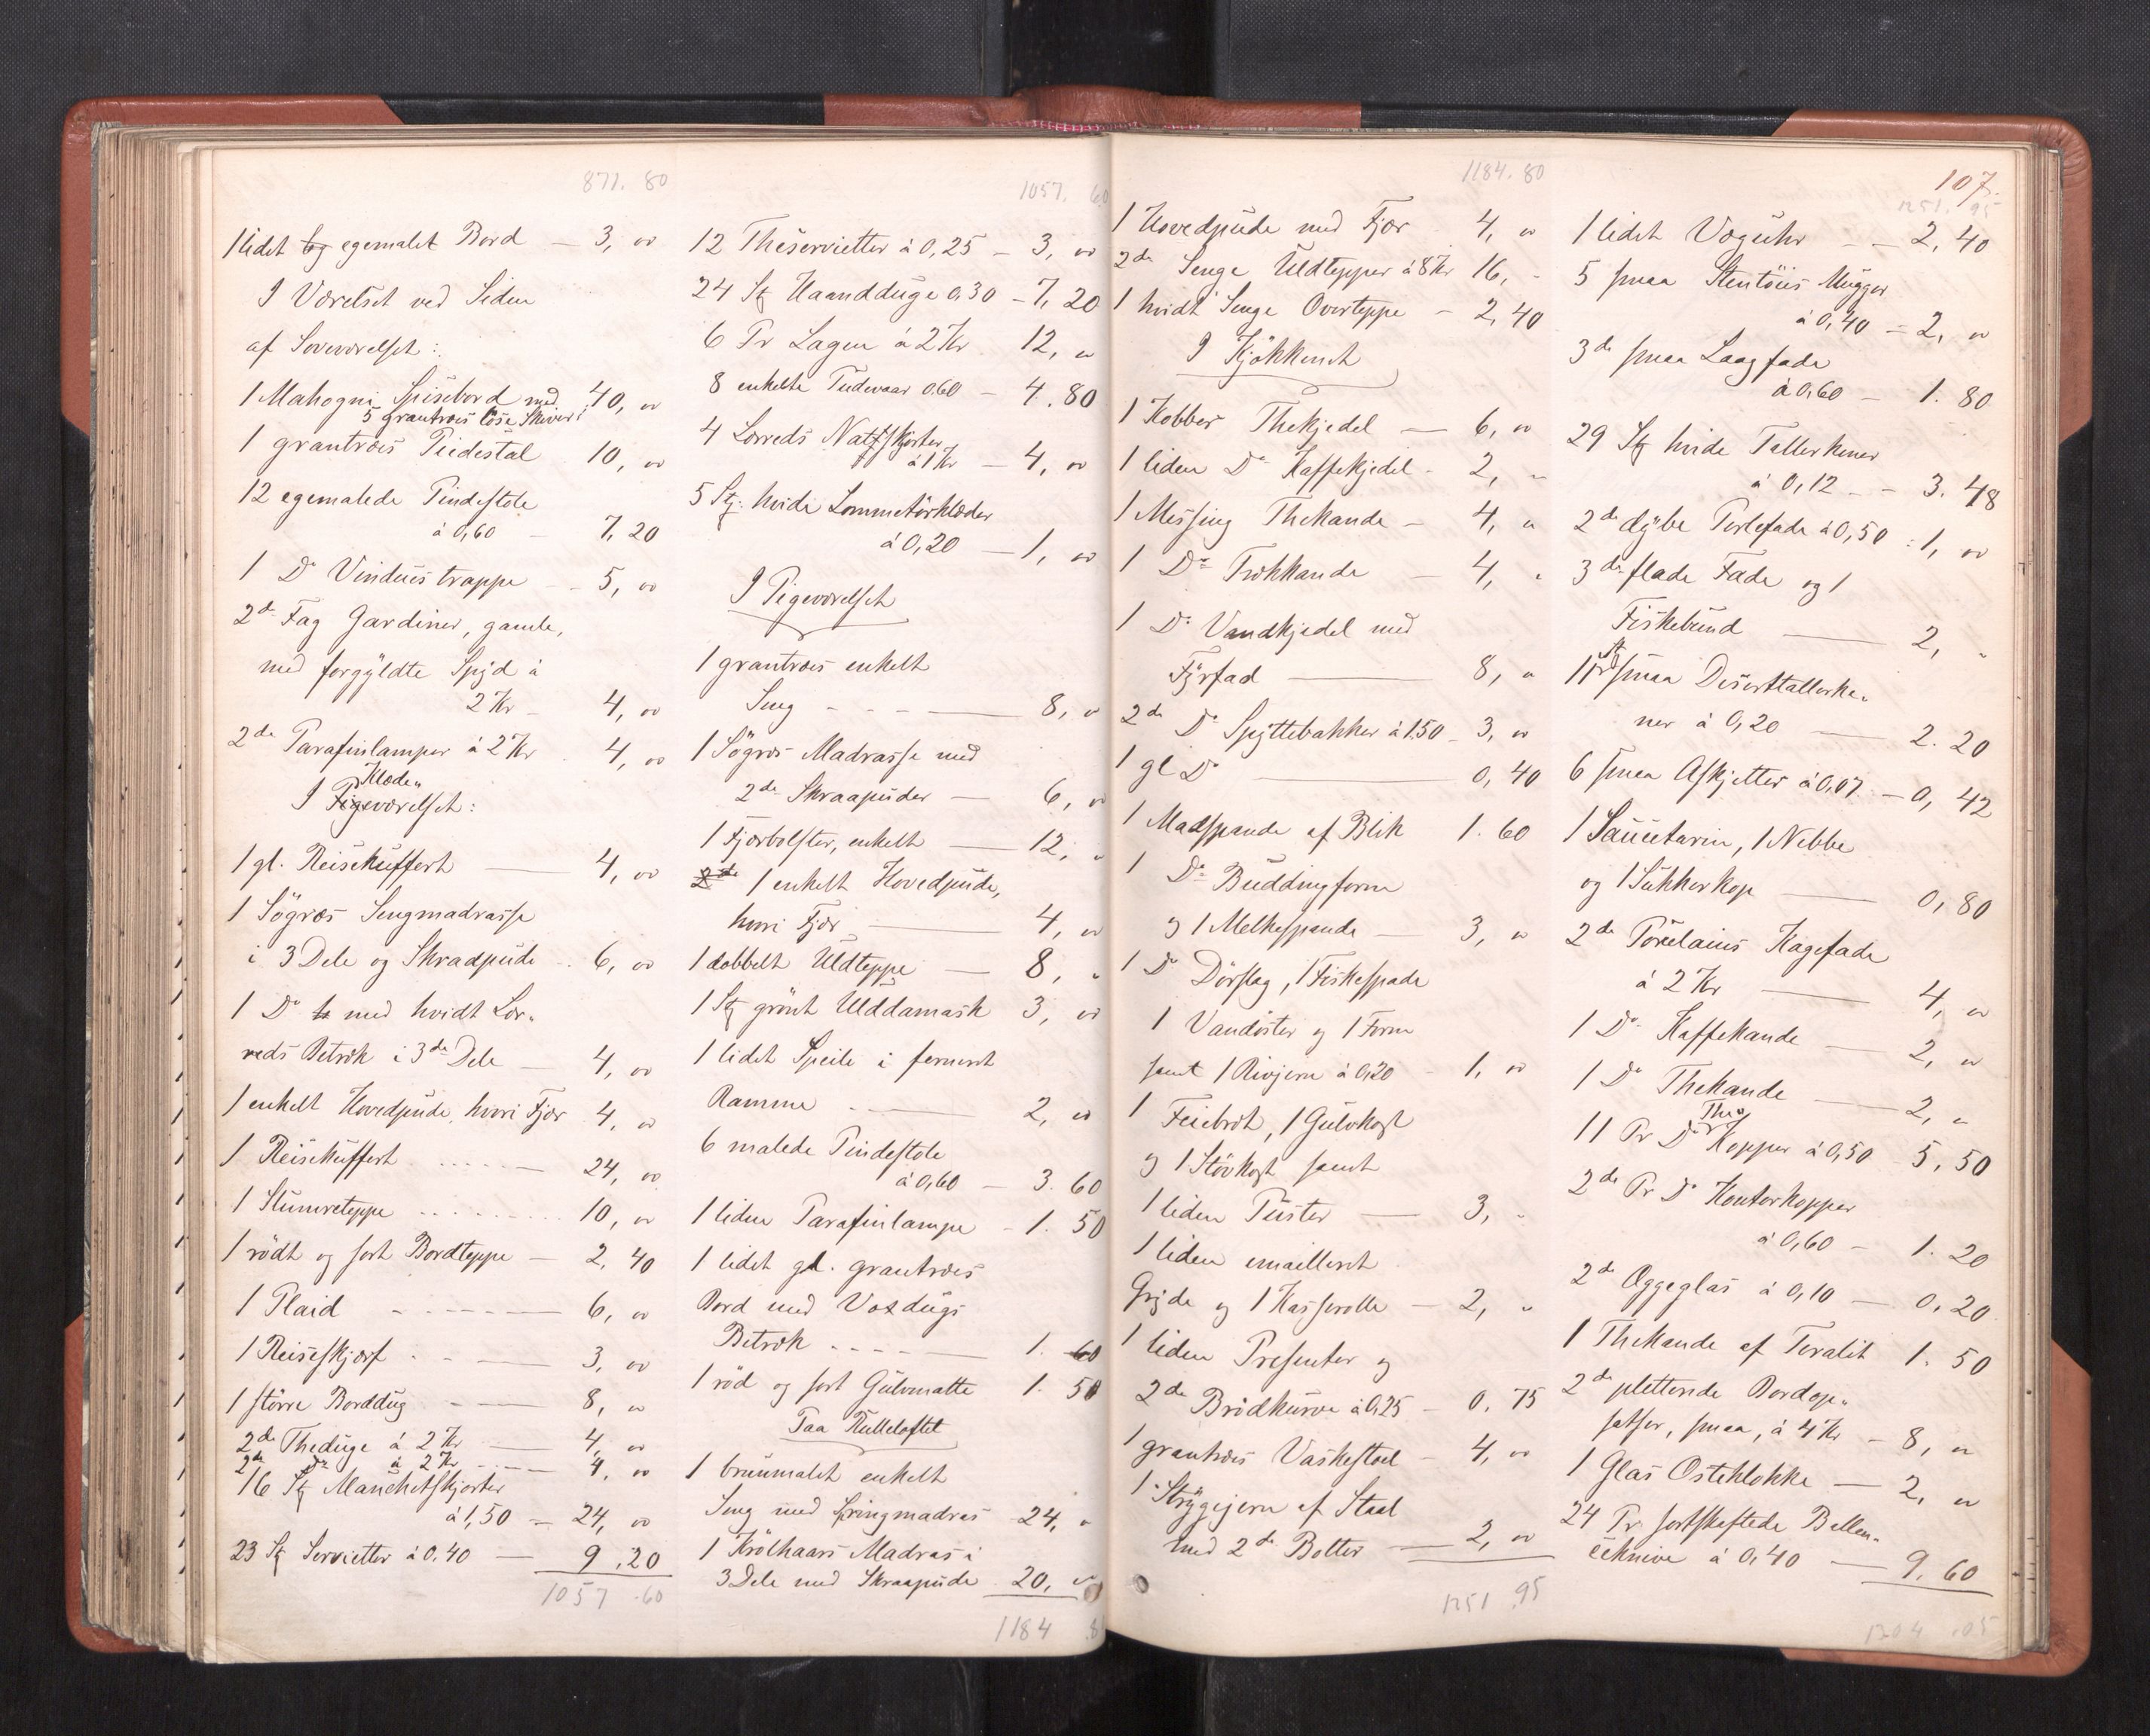 871. 80
1 lidet egemalet Bord — 3, 00
I Værelset ved Siden
af Soveværelset:
1 Mahogni Spisebord med 40, 00
5 grantræes löse Skiver:
1 grantræes Piedestal 10, 00
12 egemalede Pindestole
á 0,60 — 7, 20
1 Do Vinduestrappe — 5, 00
2de Fag Gardiner, gamle,
med forgyldte Spyd á
2 Kr — 4, 00
2de Parafinlamper á 2 Kr 4, 00
Klæde„
I Pigeværelset:
1 gl. Reisekuffert — 4, 00
1 Sögræs Sengmadrasse
i 3 Dele og Skraapude 6, 00
1 Do med hvidt Lær„
reds Betræk i 3de Dele — 4, 00
1 enkelt Hovedpude, hvori Fjær 4, 00
1 Reisekuffert — 24, 00
1 Slumreteppe 10, 00
1 rödt og sort Bordteppe — 2, 40
1 Plaid — 6, 00
1 Reiseskjærf — 3, 00
1 större Borddug — 8, 00
2de Theduge á 2 Kr — 4, 00
2de Do á 2 Kr — 4, 00
16 Stk Manchetskjorter
á 1,50 — 24, 00
23 Stk Servietter á 0.40 — 9. 20
1057 .60
1057. 60
12 Theservietter á 0,25 — 3, 00
24 Stk Haandduge 0.30 — 7, 20
6 Pr Lagen á 2 Kr 12, 00
8 enkelte Pudevaar 0.60 — 4. 80
4 Lærreds Natskjorter
á 1 Kr — 4, 00
5 Stk. hvide Lommetörklæder
á 0,20 — 1, 00
I Pigeværelset
1 grantræes enkelt
Seng — 8, 00
1 Sögræs Madrasse med
2de Skraapuder — 6, 00
1 Fjærbolster, enkelt — 12, „
2de 1 enkelt Hovedpude,
hvori Fjær — 4, 00
1 dobbelt Uldteppe — 8, „
1 Stk grönt Ulddamask 3, 00
1 lidet Speile i ferneret
Ramme — 2, 00
6 malede Pindestole
á 0,60 — 3. 60
1 liden Parafinlampe — 1. 50
1 lidet gl. grantræes
Bord med Voxdugs
Betræk — 1. 60
1 röd og sort Gulvmatte 1. 50
Paa Rulleloftet
1 brunmalet enkelt
Seng med Springmadras 24, „
1 Krölhaars Madras i
3 Dele med Skraapude 20, 00
1184 .8
1184. 80
1 Hovedpude med Fjær 4, 00
2de Senge Uldtepper á 8 Kr 16, -
1 hvidt Senge Overteppe — 2, 40
I Kjökkenet
1 Kobber Thekjedel — 6, 00
1 liden Do Kaffekjedel — 2, „
1 Messing Thekande — 4, „
1 Do Trækkande — 4, „
1 Do Vandkjedel med
Fyrfad — 8, „
2de Do Spyttebakker á 1.50 — 3, 00
1 gl Do — 0, 40
1 Madspande af Blik 1. 60
1 Do Buddingform
og 1 Melkespande — 3, 00
1 Do Dörslag, 1 Fiskespade
1 Vandöser og 1 Form
samt 1 Rivjern á 0,20 — 1, 00
1 Feiebræt, 1 Gulvkost
og 1 Stövkost samt
1 liden Puster — 3, -
1 liden emailleret
Gryde og 1 Kasserolle — 2, „
1 liden Presenter og
2de Brödkurve á 0,25 — 0. 75
1 grantræes Vaskestoel — 4, 00
1 Strygejern af Staal
med 2de Bolter — 2, 00
1251 .95
107.
1251. 95
1 lidet Væguhr — 2, 40
5 smaa Stentöies Mugger
á 0,40 — 2, 00
3de smaa Laagfade
á 0,60 — 1. 80
29 Stk hvide Tallerkener
á 0,12 — 3. 48
2de dybe Perlefade á 0,50 1, 00
3de flade Fade og 1
Fiskebund — 2, „
11 St smaa Deserttallerke„
ner á 0,20 — 2. 20
6 smaa Askjetter á 0,07 — 0, 42
1 Saucetærin, 1 Nebbe
og 1 Sukkerkop — 0, 80
2de Porcelains Kagefade
á 2 Kr — 4, 00
1 Do Kaffekande — 2, 00
1 Do Thekande — 2, „
The
11 Pr Do Kopper á 0,50 5, 50
2de Pr Do Kontorkopper
á 0,60 — 1. 20
2de Æggeglas á 0,10 — 0, 20
1 Thekande af Teralit 1. 50
2de pletterede Bordop„
satser, smaa, á 4 Kr — 8, 00
1 Glas Osteklokke — 2, 00
24 Pr. sortskaftede Ballan„
ceknive á 0,40 — 9. 60
1304 .05